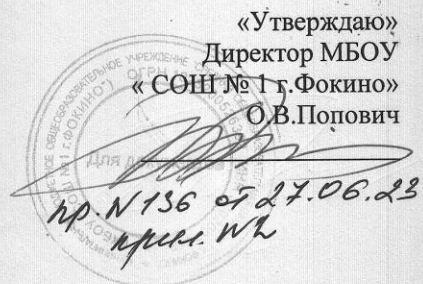 «Утверждаю»
Директор МБОУ
« СОШ № 1 г.Фокино»
О.В.Попович
Для
пр. N 136 от 27.06.23
прил. N2